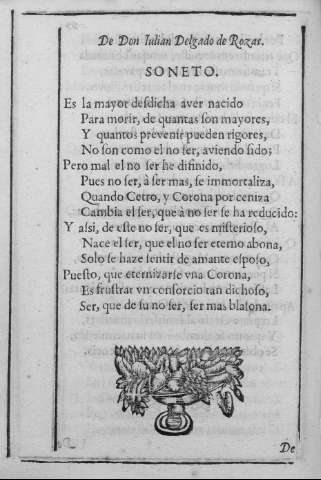 De Don Iulian Delgado de Rozas.
SONETO.
Es la mayor desdicha aver nacido
Para morir, de quantas son mayores,
Y quantos prevenir pueden rigores,
No son como el no ser, aviendo sido;
Pero mal el no ser he difinido,
Pues no ser, à ser mas, se immortaliza,
Quando Cetro, y Corona por ceniza
Cambia el ser, que à no ser se ha reducido:
Y assi, de este no ser, que es misterioso,
Nace el ser, que el no ser eterno abona,
Solo se haze sentir de amante esposo,
Puesto, que eternizarse vna Corona,
Es frustrar vn consorcio tan dichoso,
Ser, que de su no ser, ser mas blasona.
De